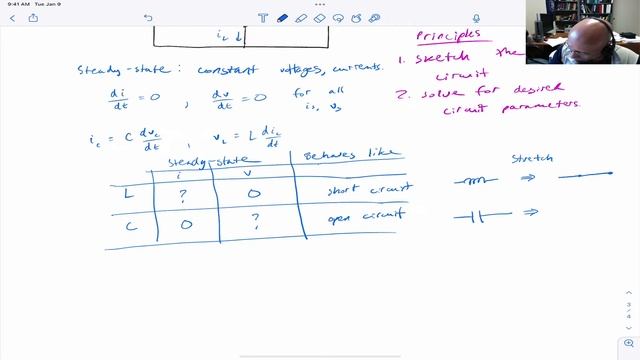 9:41 AM Tue Jan 9
i_L ↓
Steady-state: constant voltages, currents.
di/dt = 0 , dv/dt = 0 for all
i_s, v_s
i_c = C dv_c/dt , v_L = L di_L/dt
Steady-state Behaves like
i v
L ? 0 short circuit
C 0 ? open circuit
Principles
1. Sketch the
circuit
2. Solve for desired
circuit parameters.
Stretch
⇒
⇒
3/4